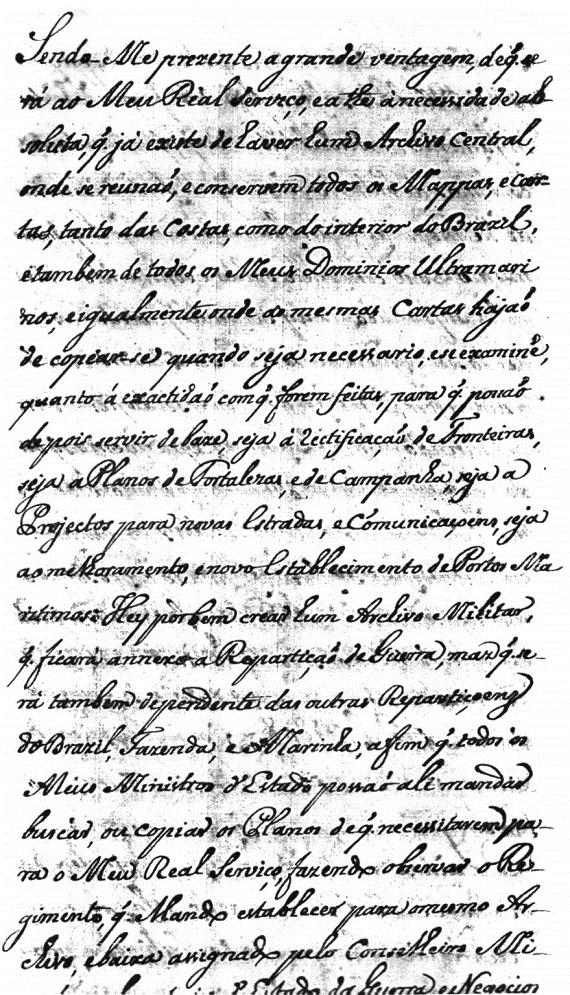 Sendo Me prezente a grande ventagem, de q̃ se
rá ao Meu Real Serviço, e a the á necessidade ab
soluta, q̃ já existe de haver hum Archivo Central,
onde se reunaõ, e conservem todos os Mappas, e Car-
tas, tanto das Costas, como do interior do Brazil,
e tambem de todos os Meus Dominios Ultramari
nos, e igualmente onde as mesmas Cartas hajaõ
de copiar-se quando seja necessario, e se examinẽ,
quanto á exactidaõ com q̃ forem feitas, para q̃ possaõ
depois servir de baze, seja á rectificaçaõ de Fronteiras,
seja a Planos de Fortalezas, e de Campanha, seja a
Projectos para novas Estradas, e Cõmunicaçoens, seja
ao melhoramento, e novo Establecimento de Portos Ma
ritimos: Hey por bem crear hum Archivo Militar,
q̃ ficará annexo a Repartiçaõ de Guerra, mas q̃ se-
rá tambem dependente das outras Repartiçoens
do Brazil, Fazenda, e Marinha, a fim q̃ todos os
Meus Ministros d'Estado possaõ ali mandar
buscar, ou copiar os Planos de q̃ necessitarem pa-
ra o Meu Real Serviço, fazendo observar o Re-
gimento, q̃ Mando establecer para o mesmo Ar-
chivo, e baixa assignado pelo Conselheiro Mi-
Estado da Guerra e Negocios